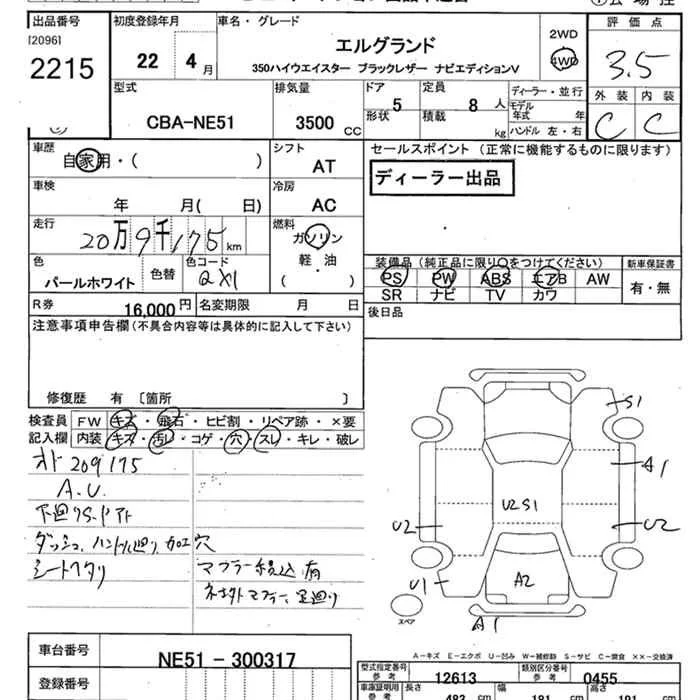 出品番号 初度登録年月 車名・グレード 評価点
[2096]
2215 22 4月 エルグランド 2WD 4WD 3.5
350ハイウエイスター ブラックレザー ナビエディションV
型式 排気量 ドア 定員 ディーラー・並行 外装 内装
CBA-NE51 3500 CC 5 8人 モデル年式 年 C C
形状 積載 kg ハンドル 左・右
車歴 シフト セールスポイント (正常に機能するものに限ります)
自家用・( ) AT ディーラー出品
車検 冷房
年 月( 日) AC
走行 燃料
20万9千175km ガソリン
軽・油
( )
色 色替 色コード 装備品(純正品に限り○をつけてください) 新車保証書
パールホワイト QX1 PS PW ABS エアB AW 有・無
SR ナビ TV カワ
R券 16,000円 名変期限 月 日 後日品
注意事項申告欄(不具合内容等は具体的に記入して下さい)
修復歴 有 〔箇所 〕
検査員 FW キズ・飛石・ヒビ割・リペア跡・×要
記入欄 内装 キズ・汚レ・コゲ・穴・スレ・キレ・破レ
オド 209175
A.U.
下廻りS.Pアト
ダッシュ、ハンドル廻り加工穴
シートヘタリ マフラー積込有
S1
A1
U2S1
U2 U2
U1 A2
スペア A1
A-キズ E-エクボ U-凹み W-補修跡 S-サビ C-腐食 ××-交換済
車台番号 NE51-300317
登録番号
型式指定番号 参考 12613 類別区分番号 参考 0455
車庫証明用 参考 長さ 483 cm 幅 181 cm 高さ 191 cm